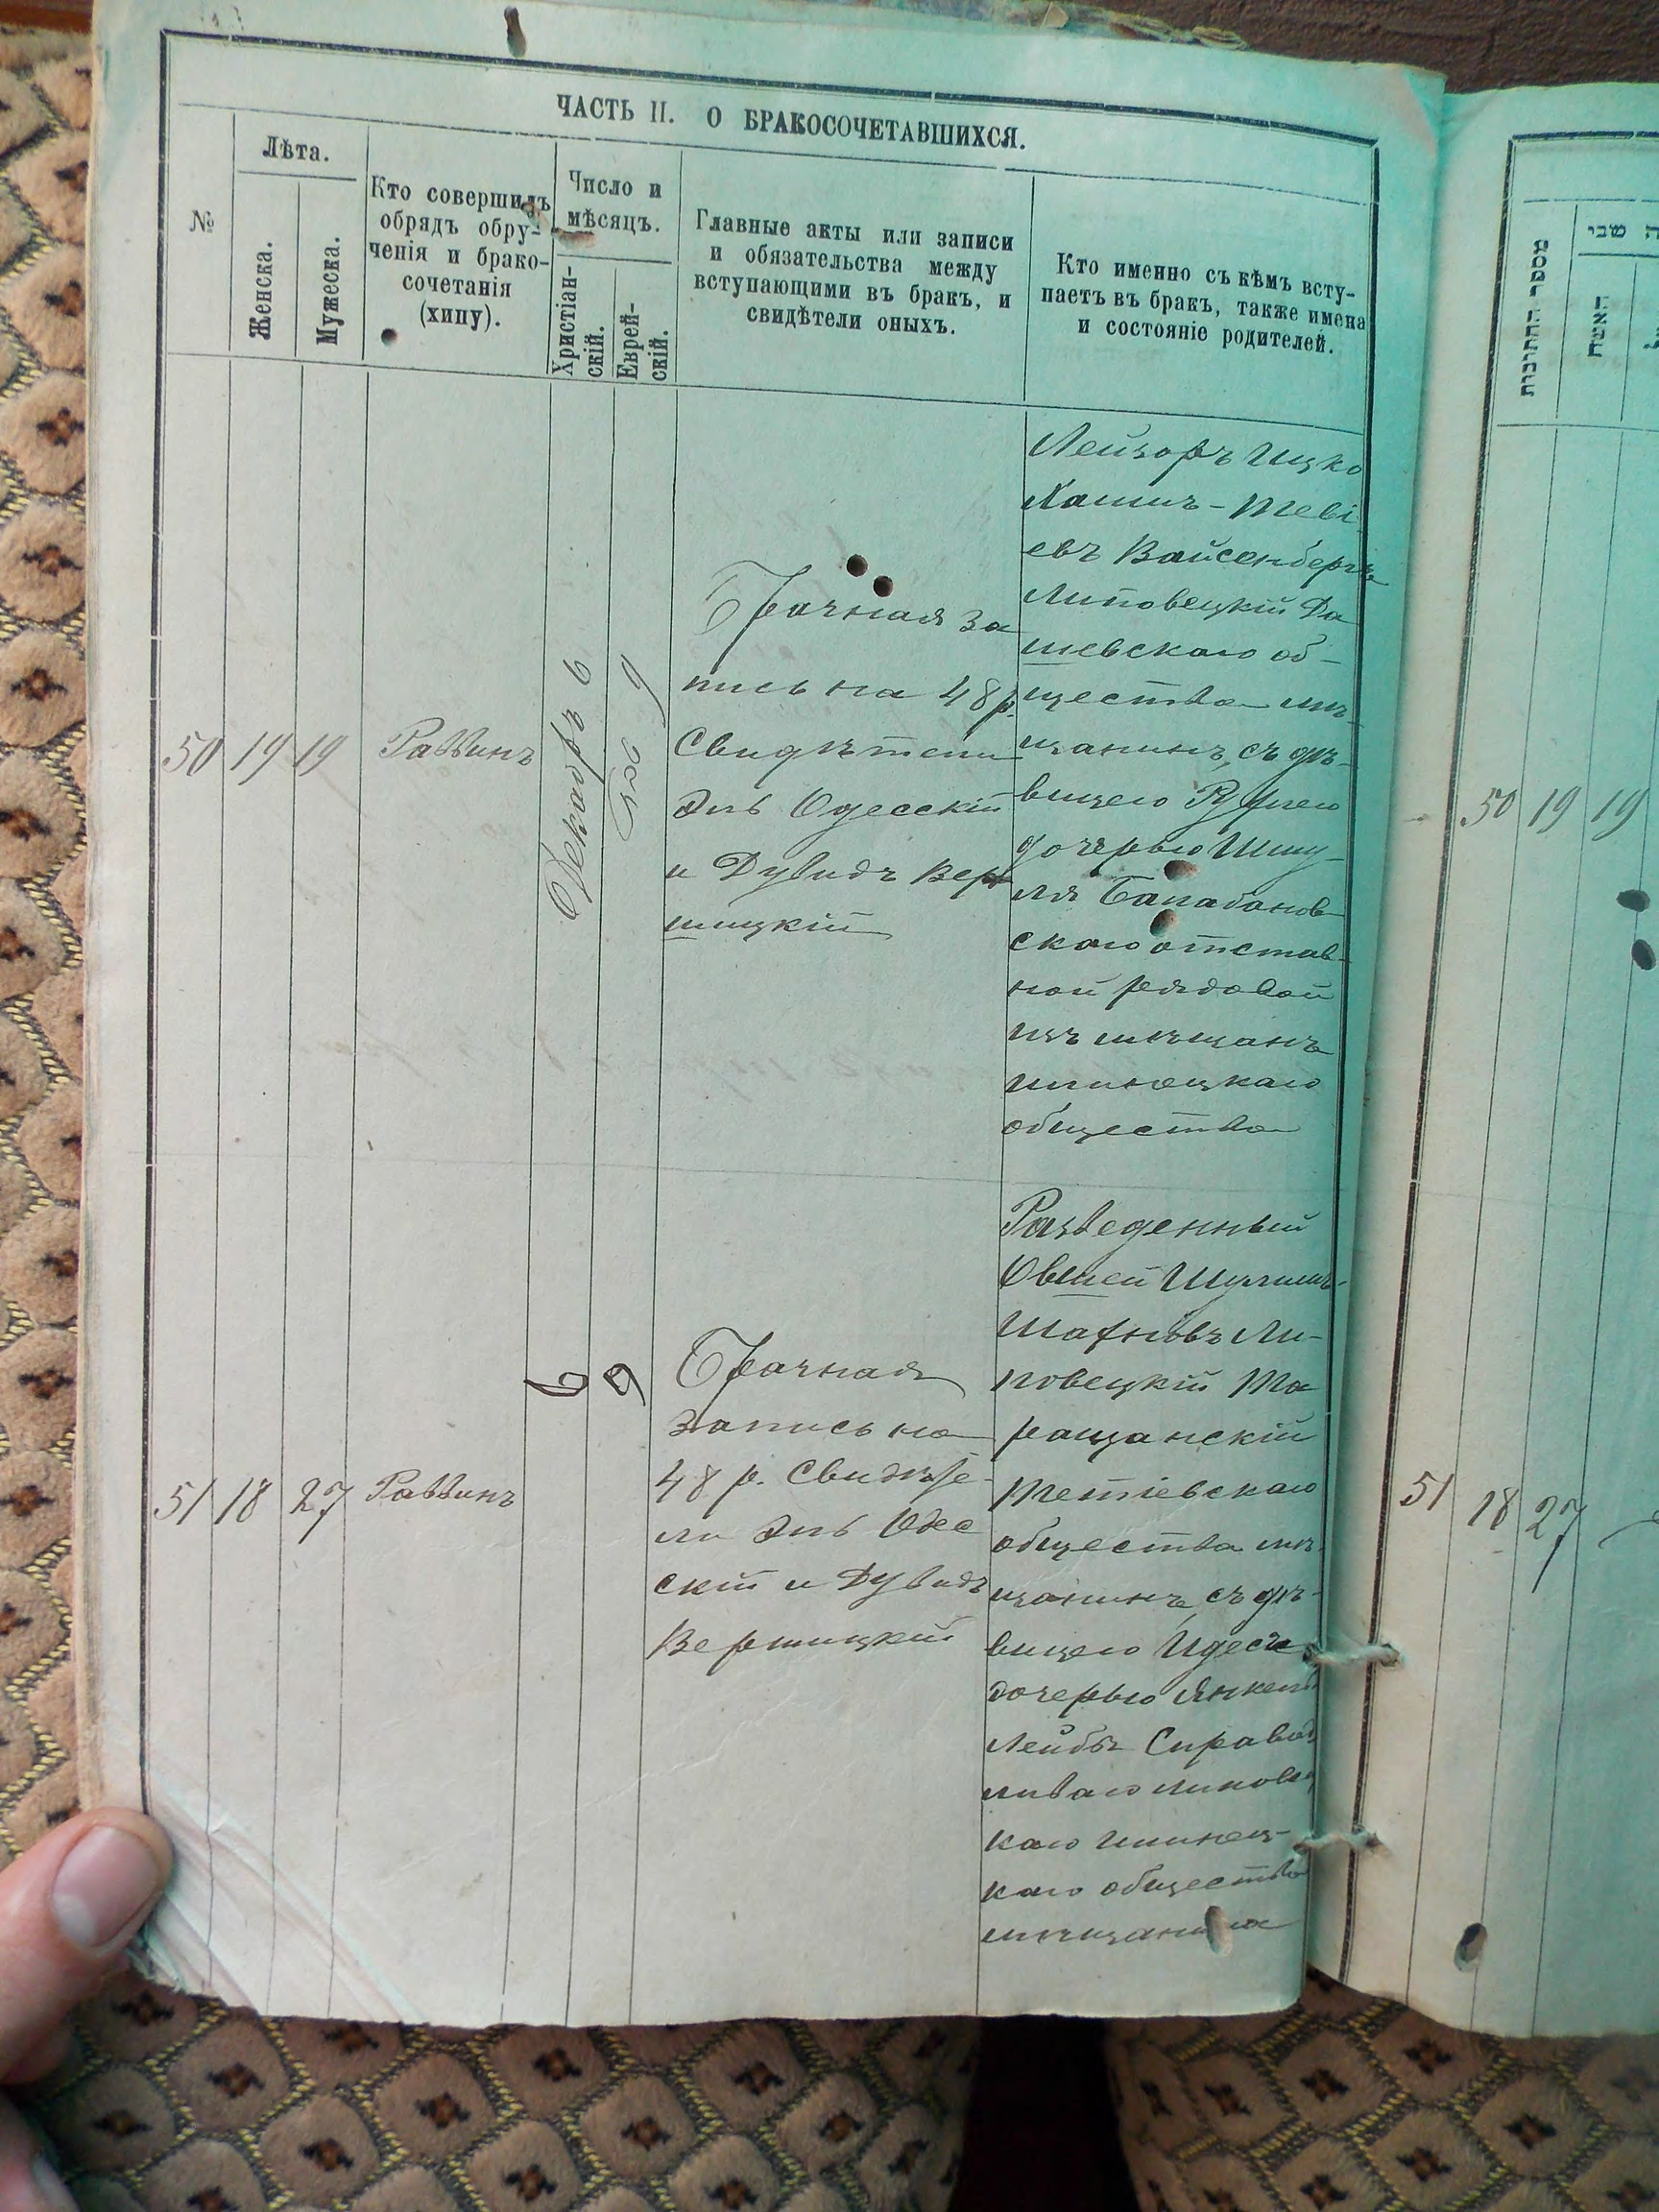 ЧАСТЬ II. О БРАКОСОЧЕТАВШИХСЯ.
№
Лѣта.
Женска.
Мужеска.
Кто совершилъ
обрядъ обру-
ченія и брако-
сочетанія
(хипу).
Число и
мѣсяцъ.
Христіан-
скій.
Еврей-
скій.
Главные акты или записи
и обязательства между
вступающими въ бракъ, и
свидѣтели оныхъ.
Кто именно съ кѣмъ всту-
паетъ въ бракъ, также имена
и состояніе родителей.
50
19
19
Раввинъ
Декабрь 6
9
Брачная за
пись на 48 р.
Свидѣтели
Эль Одесскій
и Дувидъ Вер
шицкій
Лейзоръ Ицко
Хаимъ-Теві
евъ Вайсенбергъ
Липовецкій Да
шевскаго об-
щества мѣ-
щанинъ, съ дѣ-
вицею
дочерью Шму-
ля Балабанов
скаго отстав-
ной рядовой
изъ мѣщанъ
илинецкаго
общества
51
18
27
Раввинъ
6
9
Брачная
запись на
48 р. Свидѣте-
ли Эль Одес
скій и Дувидъ
Вершицкій
Разведенный
Овшей
Шахновъ Ли-
повецкій Та
ращанскій
Тетіевскаго
общества мѣ-
щанинъ съ дѣ-
вицею Идесъ
дочерью Янкель
Лейбы Справед
ливаго липовец
каго илинец-
каго общества
мѣщанина
מספר החתונות
שני
האשה
50
19
19
51
18
27